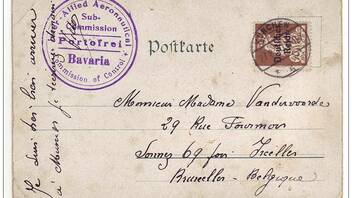 Allied Aeronautical
Sub-
Commission
Portofrei
Bavaria
Commission of Control
Postkarte
Deutsches
Reich
Monsieur Madame Vandervoorde
29 Rue Fourmois
69 par Ixelles
Bruxelles - Belgique
Je suis très bien arrivé
à Munich je